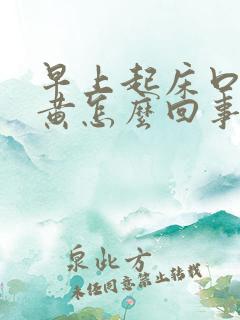 早上起床口
黄怎麽回事
泉此方
未经同意禁止转载